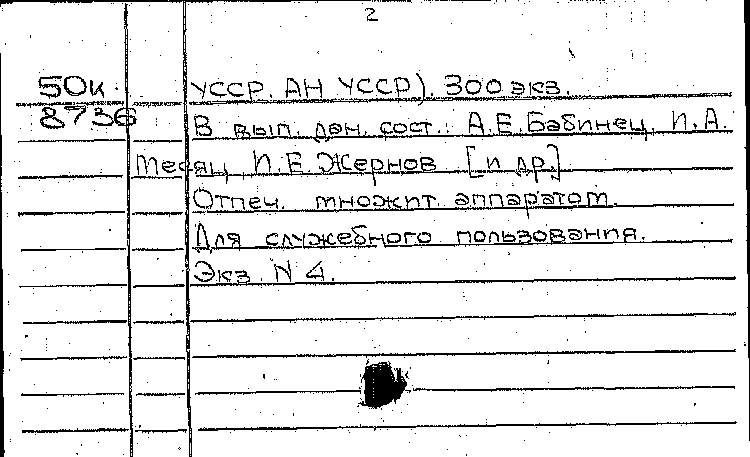 2
50к УССР. АН УССР). 300 экз.
8736 В вып. дан. сост.: А.Е. Бабинец, И.А.
Месяц, И.Е. Жернов [и др.]
Отпеч. множит. аппаратом.
Для служебного пользования.
Экз. N 4.